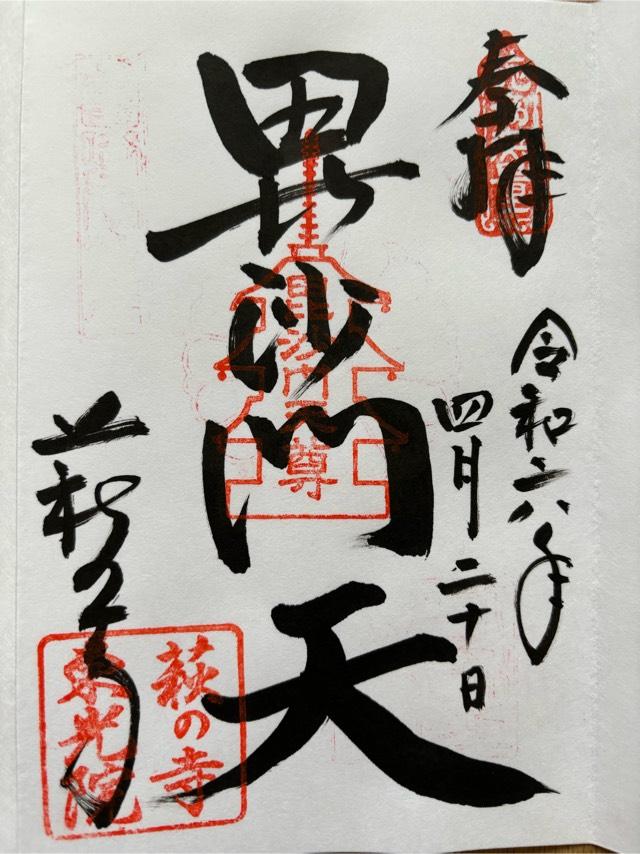 奉拝
令和六年
四月二十日
毘沙門天
毘沙門天尊
萩の寺
萩の寺
東光院